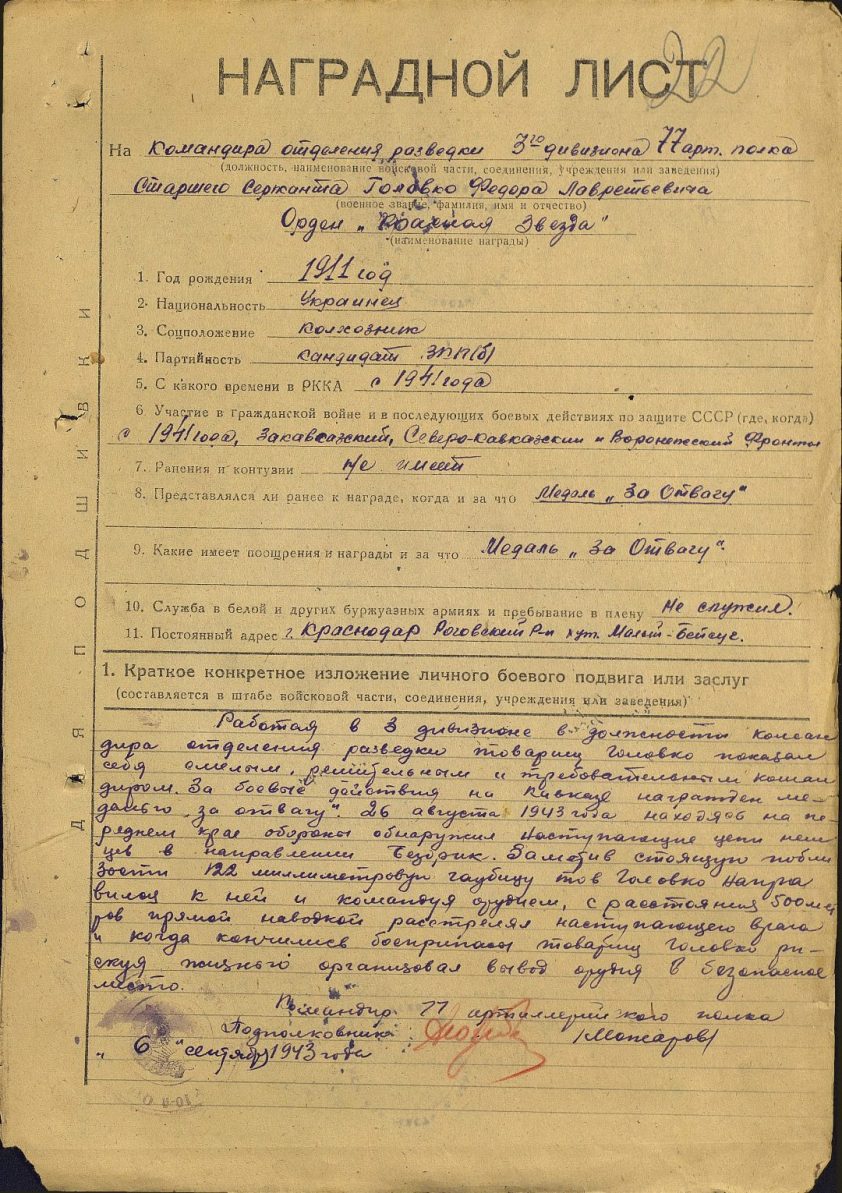 22
НАГРАДНОЙ ЛИСТ
На Командира отделения разведки 3го дивизиона 77 арт. полка
(должность, наименование войсковой части, соединения, учреждения или заведения)
Старшего Сержанта Головко Федора Лаврентьевича
(военное звание, фамилия, имя и отчество)
Орден „Красная Звезда"
(наименование награды)
1. Год рождения 1911 год
2. Национальность Украинец
3. Соцположение Колхозник
4. Партийность кандидат ВКП(б)
5. С какого времени в РККА с 1941 года
6 Участие в гражданской войне и в последующих боевых действиях по защите СССР (где, когда)
с 1941 года, Закавказский, Северо-Кавказский и Воронежский Фронты
7. Ранения и контузии Не имеет
8. Представлялся ли ранее к награде, когда и за что Медаль „За Отвагу"
9. Какие имеет поощрения и награды и за что Медаль „За Отвагу".
10. Служба в белой и других буржуазных армиях и пребывание в плену Не служил.
11. Постоянный адрес г. Краснодар Роговский Р-н хут. Малый-Бейсуг.
1. Краткое конкретное изложение личного боевого подвига или заслуг
(составляется в штабе войсковой части, соединения, учреждения или заведения)
Работая в 3 дивизионе в должности коман
дира отделения разведки товарищ Головко показал
себя смелым, решительным и требовательным коман
диром. За боевые действия на Кавказе награжден ме-
далью „за отвагу". 26 августа 1943 года находясь на пе-
реднем крае обороны обнаружил наступающие цепи нем
цев в направлении Безбрик. Заметив стоящую побли
зости 122 миллиметровую гаубицу тов Головко напра
вился к ней и командуя орудием, с расстояния 500 мет
ров прямой наводкой расстрелял наступающего врага
и когда кончились боеприпасы товарищ Головко ри-
скуя жизнью организовал вывод орудия в безопасное
место.
Командир 77 артиллерийского полка
Подполковник /Можаров/
„ 6 " сентября 1943 года
ДЛЯ ПОДШИВКИ